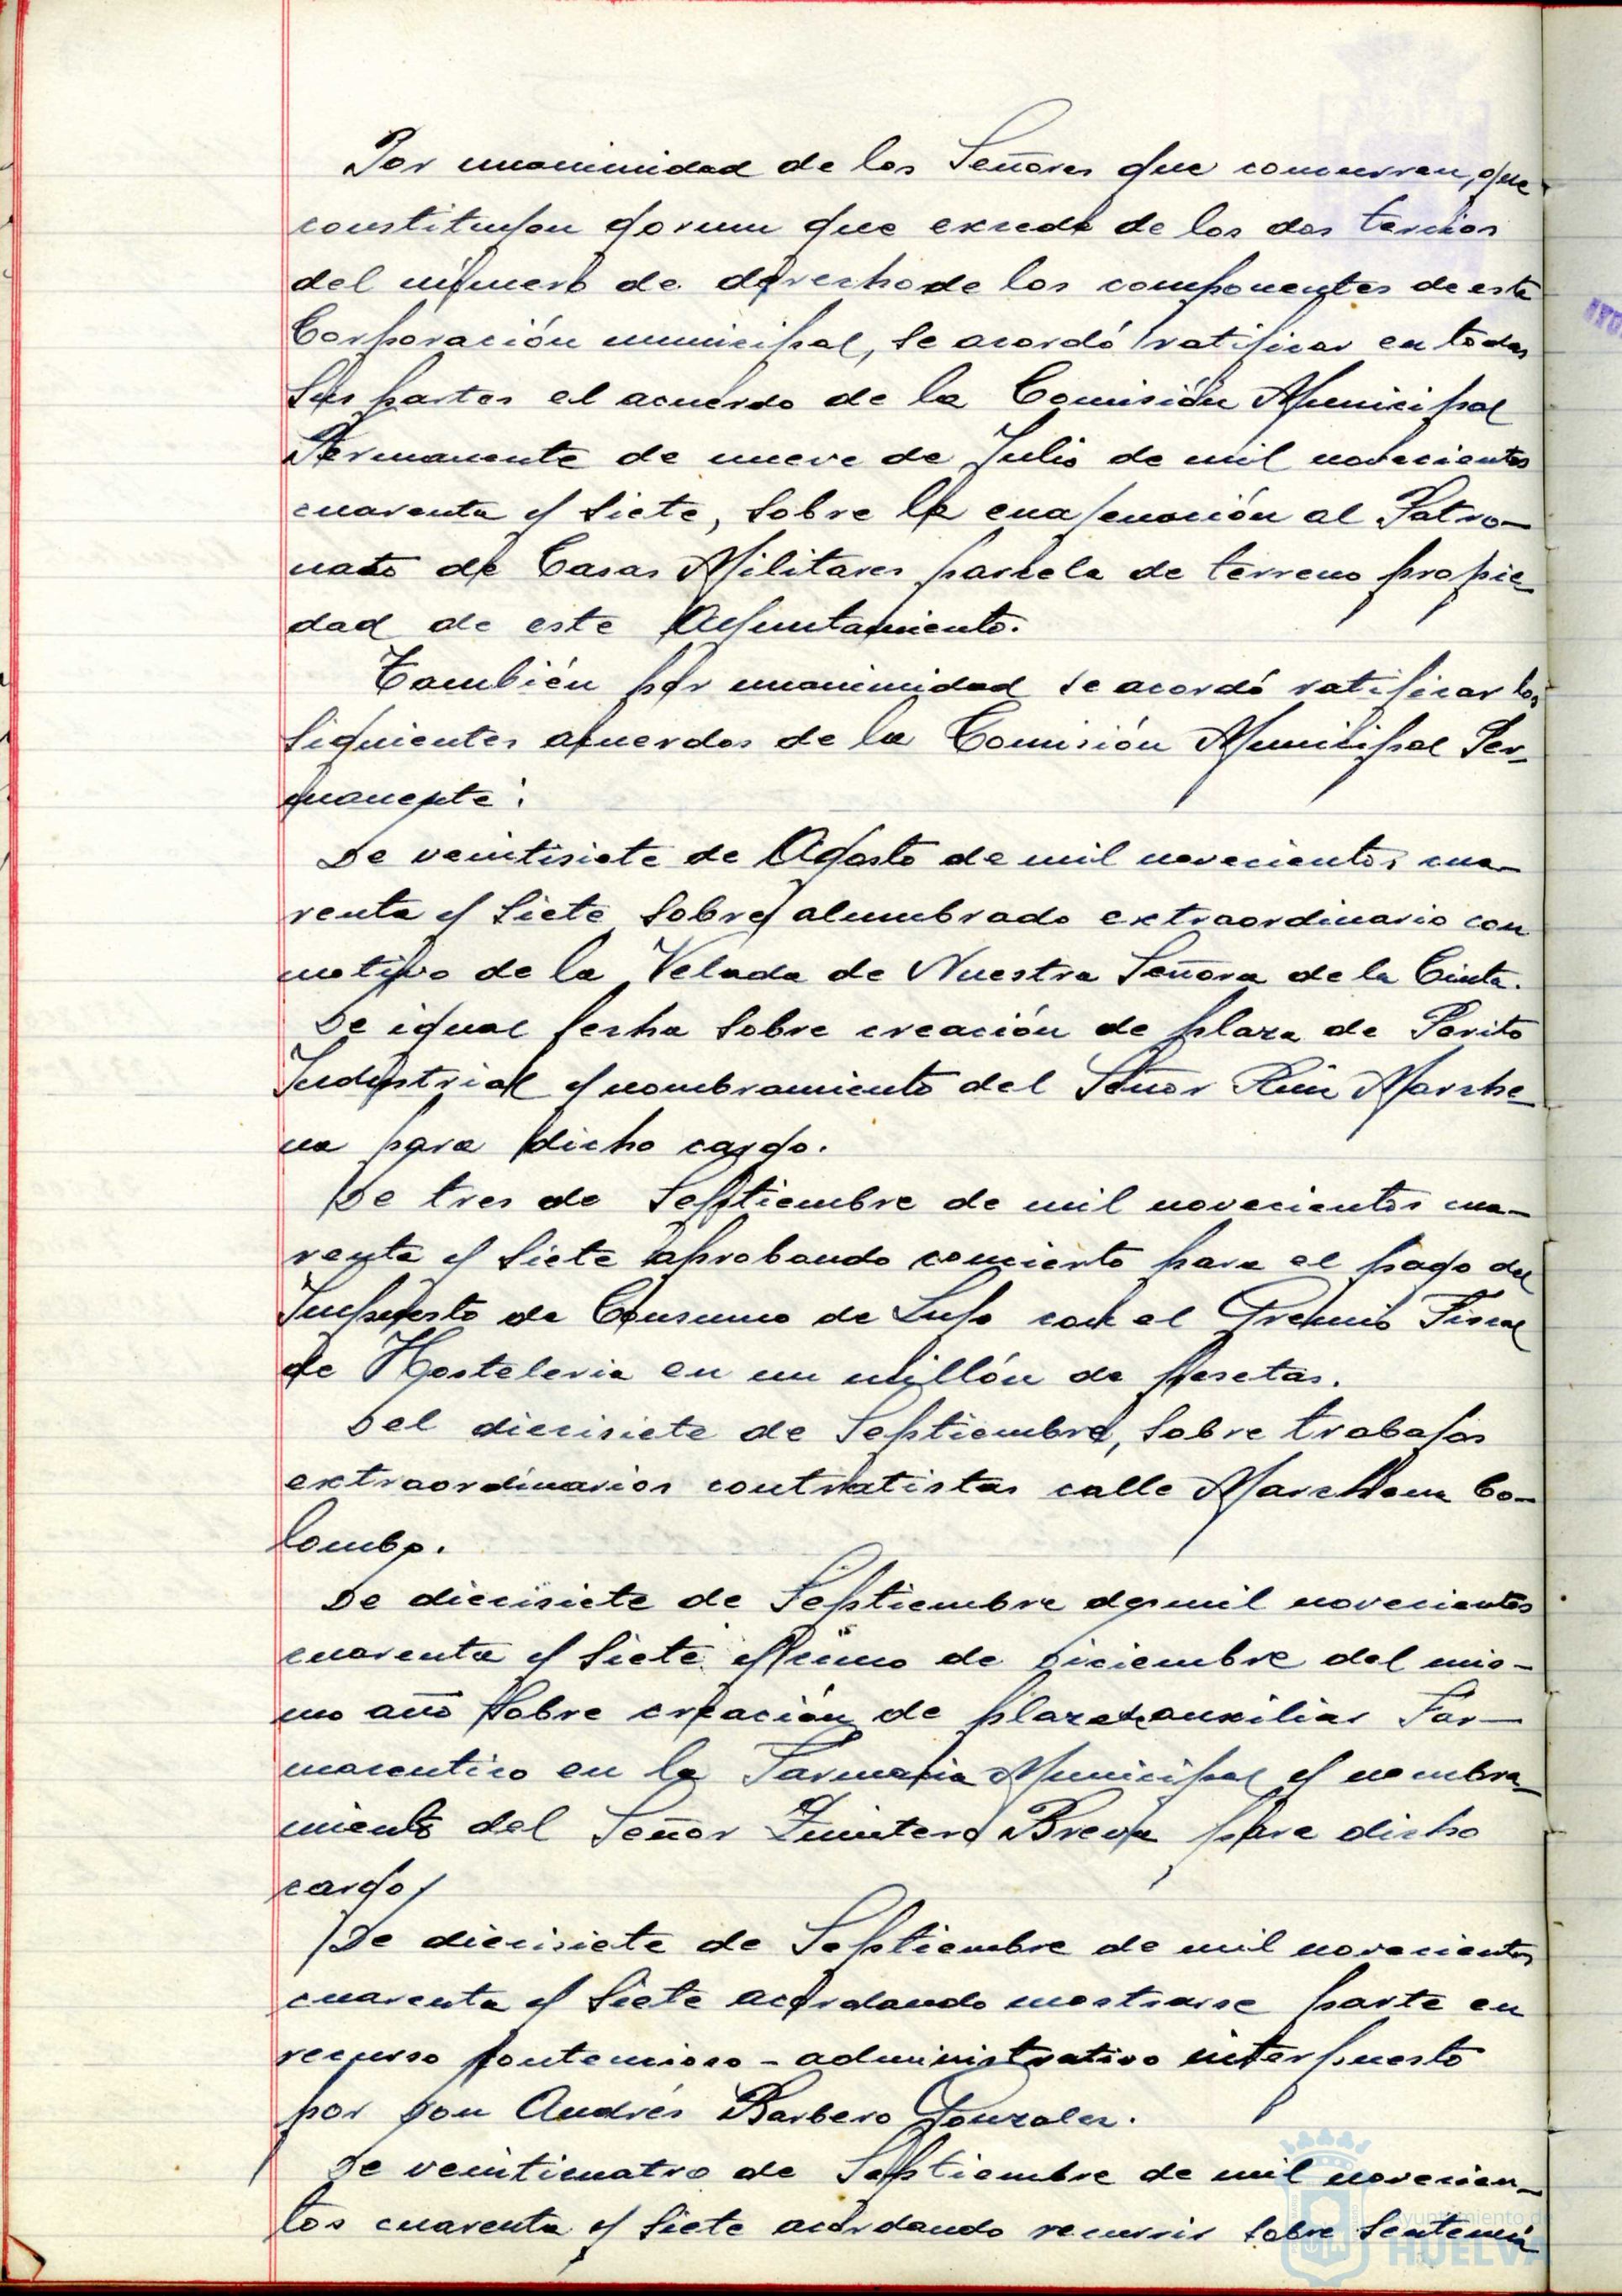 Por unanimidad de los Señores que concurren, que
constituyen qorum que excede de los dos tercios
del número de derecho de los componentes de esta
Corporación municipal, se acordó ratificar en todas
sus partes el acuerdo de la Comisión Municipal
Permanente de nueve de Julio de mil novecientos
cuarenta y siete, sobre la enajenación al Patro-
nato de Casas Militares parcela de terreno propie-
dad de este Ayuntamiento.
También por unanimidad se acordó ratificar los
siguientes acuerdos de la Comisión Municipal Per-
manente:
De veintisiete de Agosto de mil novecientos cua-
renta y siete sobre alumbrado extraordinario con
motivo de la Velada de Nuestra Señora de la Cinta.
De igual fecha sobre creación de plaza de Perito
Industrial y nombramiento del Señor Ruiz Marche-
na para dicho cargo.
De tres de Septiembre de mil novecientos cua-
renta y siete aprobando concierto para el pago del
Impuesto de Consumo de Lujo con el Gremio Fiscal
de Hosteleria en un millón de pesetas.
Del diecisiete de Septiembre, sobre trabajos
extraordinarios contratistas calle Marchena Co-
lombo.
De diecisiete de Septiembre de mil novecientos
cuarenta y siete y cinco de Diciembre del mis-
mo año sobre creación de plaza de auxiliar Far-
maceutico en la Farmacia Municipal y nombra-
miento del Señor Quintero Breva para dicho
cargo.
De diecisiete de Septiembre de mil novecientos
cuarenta y siete acordando mostrarse parte en
recurso contencioso-administrativo interpuesto
por Don Andrés Barbero Gonzalez.
De veinticuatro de Septiembre de mil novecien-
tos cuarenta y siete acordando recurrir sobre sentencia
Ayuntamiento de
HUELVA